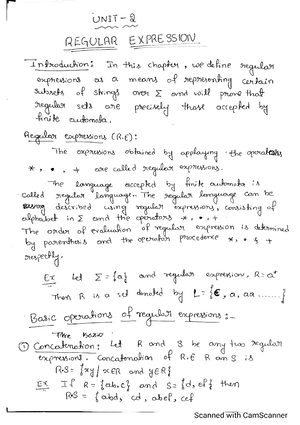 UNIT-2
REGULAR EXPRESSION
Introduction: In this chapter, we define regular
expressions as a means of representing certain
subsets of strings over Σ and will prove that
regular sets are precisely those accepted by
finite automata.
Regular expressions (R.E):
The expressions obtained by applaying the operators
*, •, + are called regular expressions.
The language accepted by finite automata is
called regular language. The regular language can be
described using regular expressions, consisting of
alphabet in Σ and the operators *, •, +
The order of evaluation of regular expression is determined
by parenthesis and the operator procedence *, • & +
respectly.
Ex Let Σ = {a} and regular expression, R = a*
Then R is a set denoted by L = {ϵ, a, aa ......}
Basic operations of regular expressions:-
The basic
① Concatenation: Let R and S be any two regular
expressions. Concatenation of R.E R an S is
R.S = {xy/x∈R and y∈R}
Ex If R = {ab, c} and S = {d, ef} then
R.S = {abd, cd, abef, cef
Scanned with CamScanner